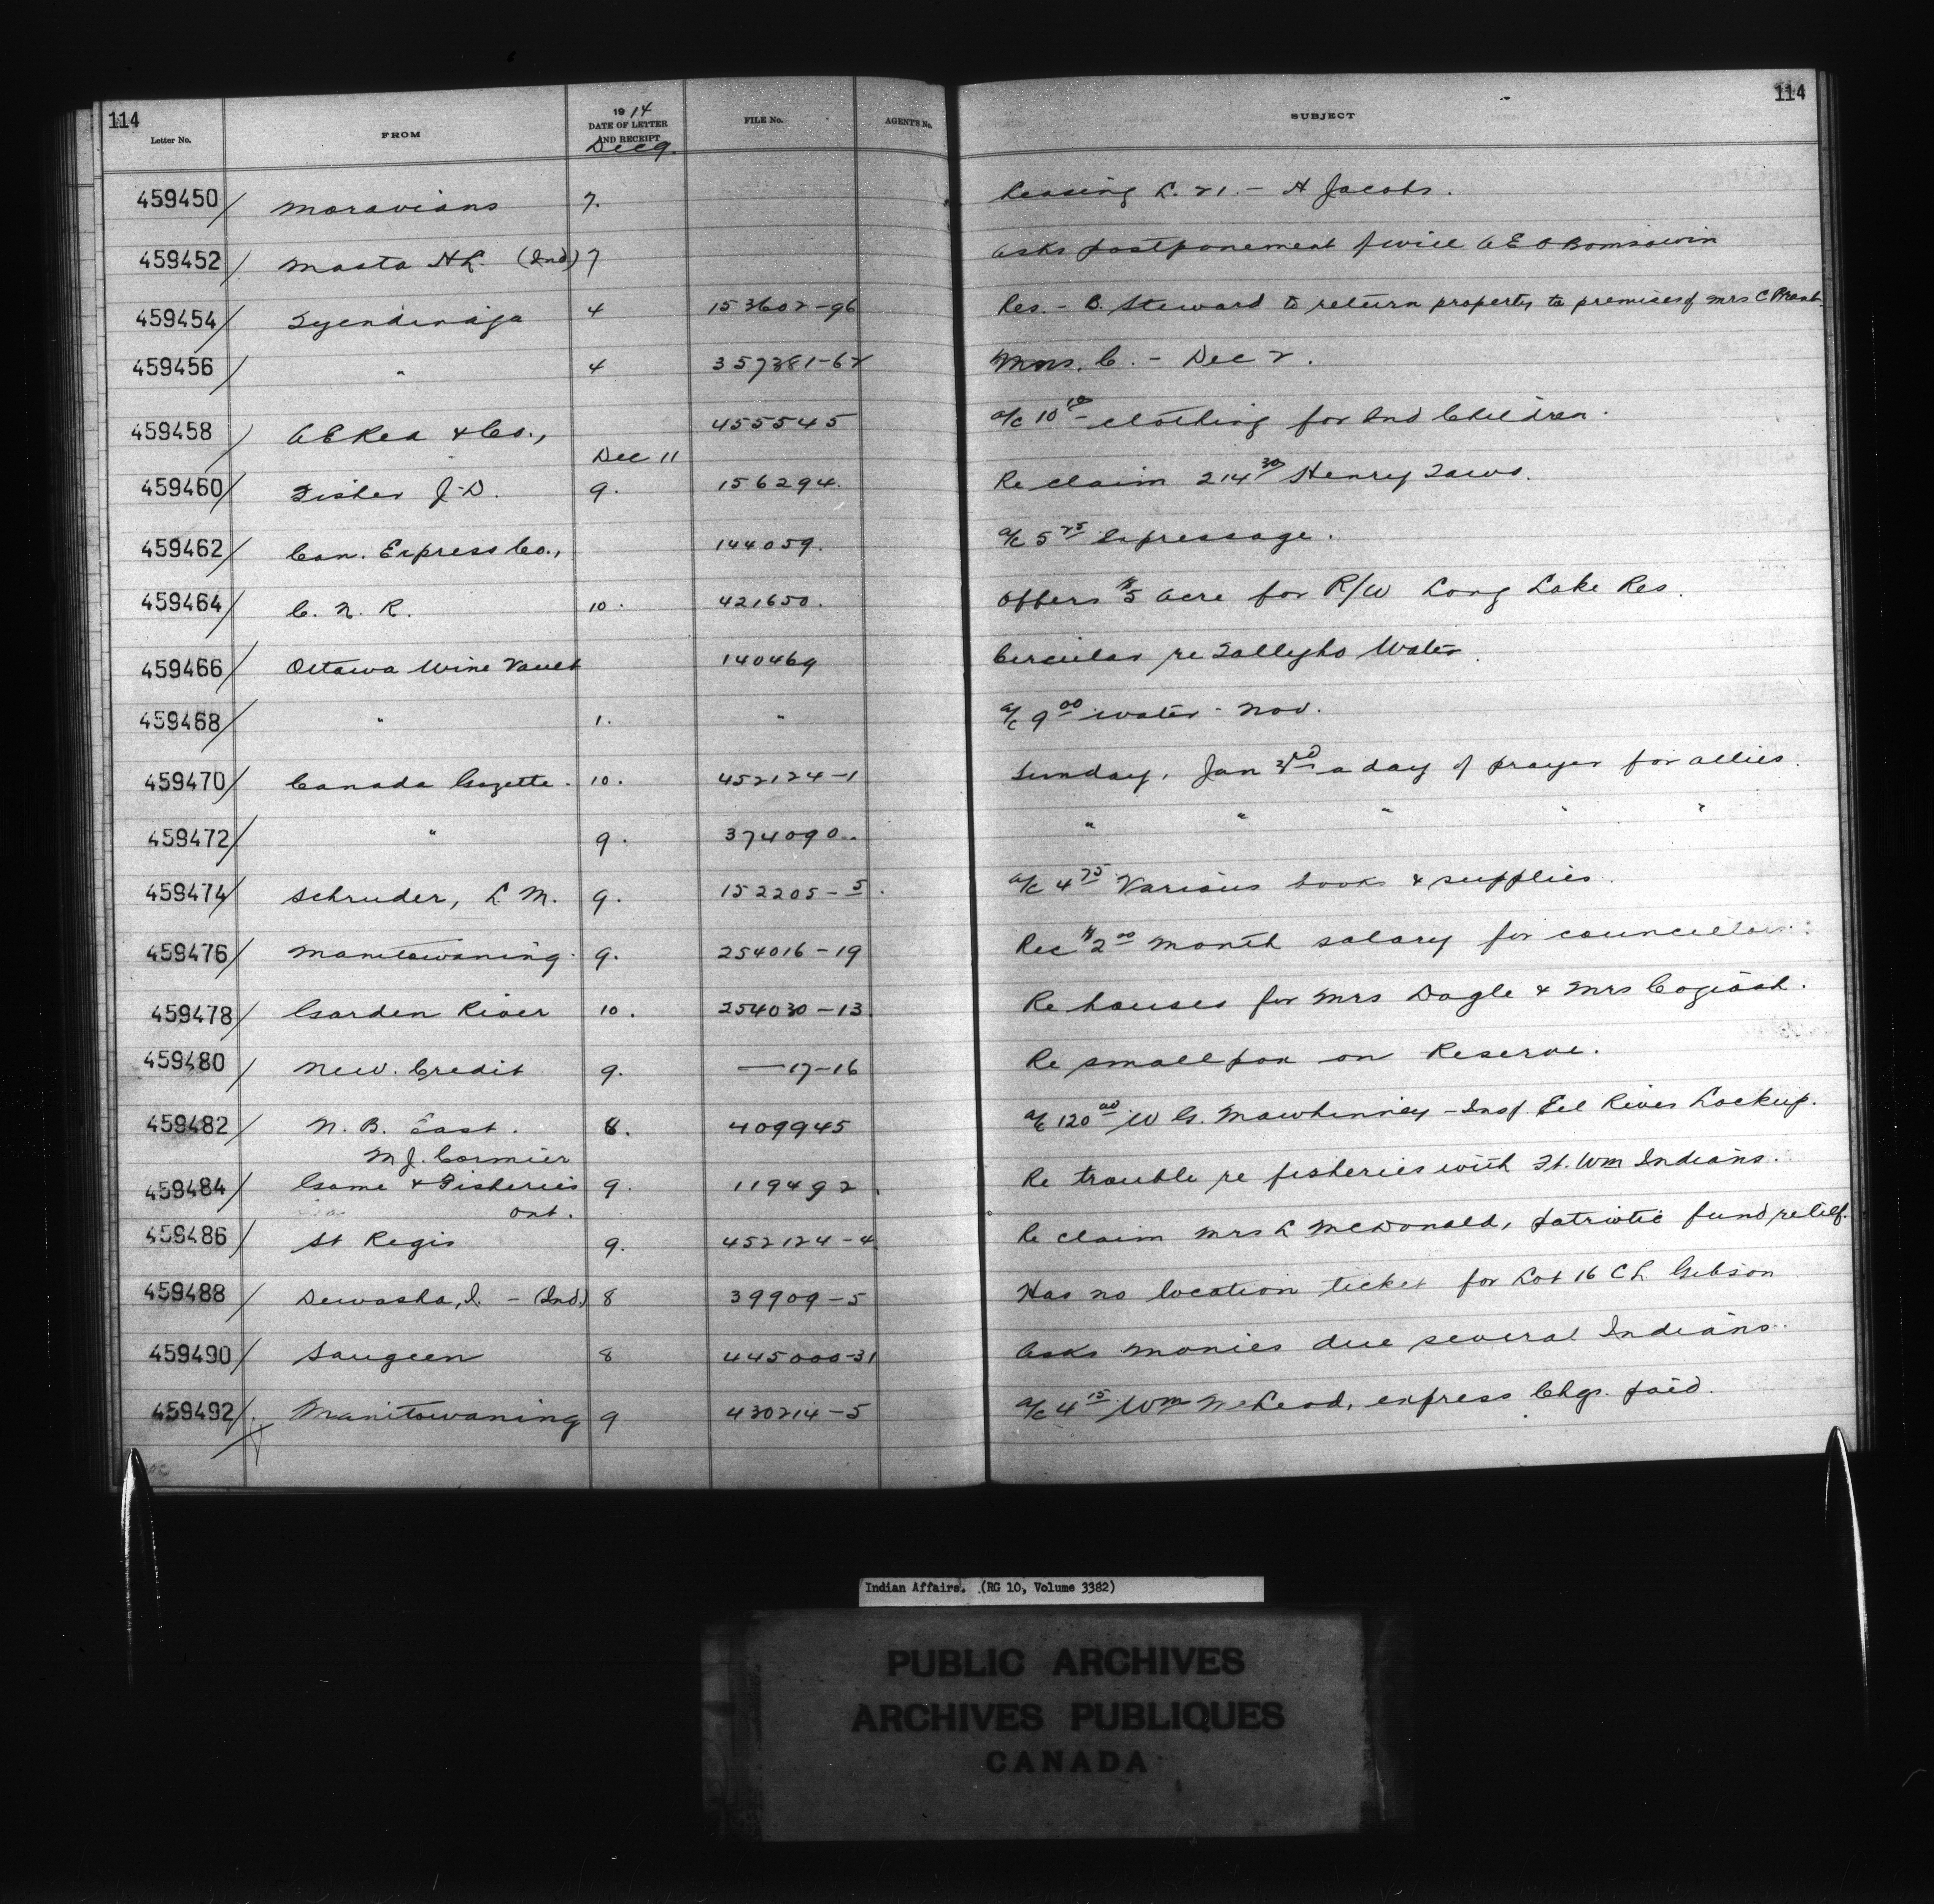 114
114
Letter No.
FROM
1914
DATE OF LETTER
AND RECEIPT
FILE No.
AGENT'S No.
SUBJECT
Dec 9.
459450 Moravians 7. Leasing L. 21. - H Jacobs.
459452 Masta H L. (Ind) 7 Asks postponement of will A E O Bomsawin
459454 Tyendinaga 4 153602-96 Res. - B. Steward to return property to premises of Mrs C Brant.
459456 " 4 357381-62 Mns. C. - Dec 2.
459458 A E Rea & Co., 455545 a/c 10 clothing for Ind Children.
Dec 11
459460 Fisher J. D. 9. 156294. Re claim 214 30 Henry Taws.
459462 Can. Express Co., 144059. a/c 5 25 Expressage.
459464 C. N. R. 10. 421650. Offers $5 acre for R/W Long Lake Res.
459466 Ottawa Wine Vault 140469 Circular re Tallyho Water.
459468 " 1. " a/c 9 00 water - Nov.
459470 Canada Gazette. 10. 452124-1 Sunday, Jan 3rd a day of prayer for allies.
459472 " 9. 374090. " " " " "
459474 Schruder, L M. 9. 152205-5. a/c 4 75 Various books & supplies.
459476 Manitowaning. 9. 254016-19 Rec $2 00 month salary for councillors.
459478 Garden River 10. 254030-13 Re houses for Mrs Dagle & Mrs Cogiosh.
459480 New. Credit 9. —17-16 Re smallpox on Reserve.
459482 N. B. East. 8. 409945 a/c 120 00 W G. Mawhinney - Insp. Eel River Lockup.
M J. Cormier
459484 Game & Fisheries 9. 119492. Re trouble re fisheries with Ft. Wm Indians.
Ont.
459486 St Regis 9. 452124-4 Re claim Mrs L McDonald, patriotic fund relief.
459488 Dewasha, I. - (Ind) 8 39909-5 Has no location ticket for Lot 16 C L Gibson
459490 Saugeen 8 445000-31 Asks monies due several Indians.
459492 Manitowaning 9 430214-5 a/c 4 15 Wm McLeod, express Chgs. paid.
Indian Affairs. (RG 10, Volume 3382)
PUBLIC ARCHIVES
ARCHIVES PUBLIQUES
CANADA